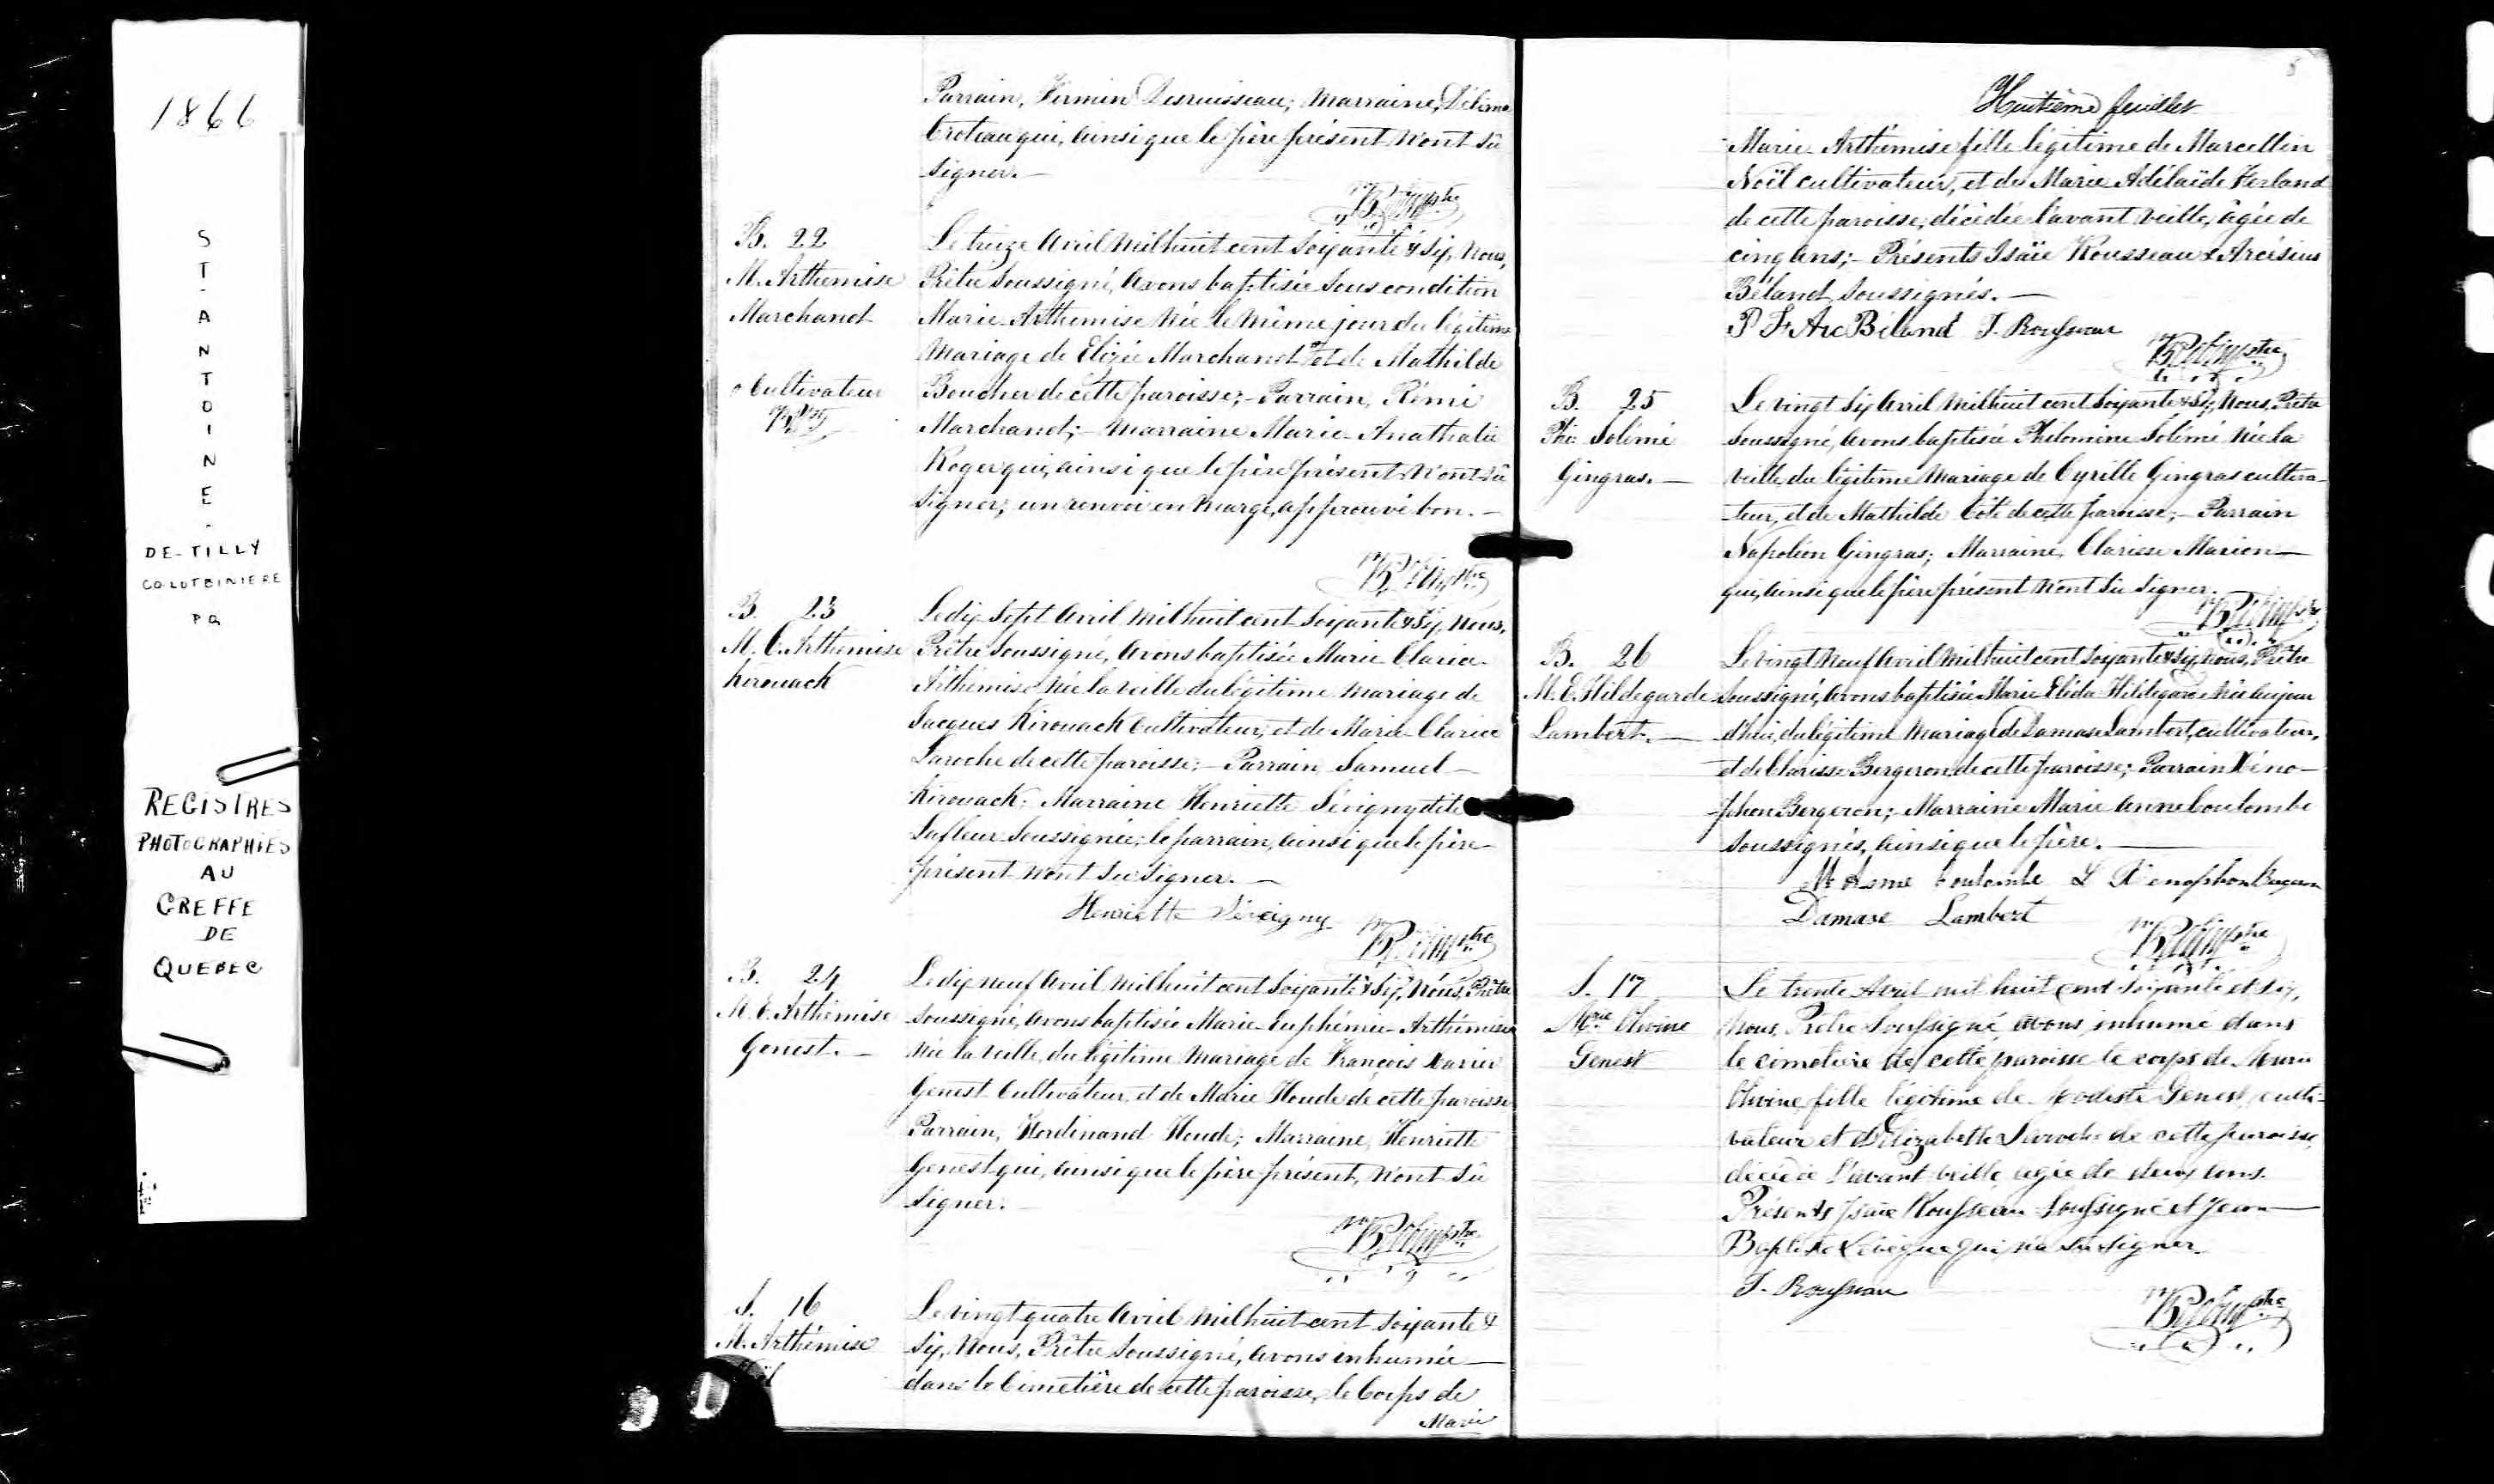 1866
ST. ANTOINE.
DE-TILLY
CO. LOTBINIERE
PQ
REGISTRES
PHOTOGRAPHIÉS
AU
GREFFE
DE
QUEBEC
Parrain, Firmin Desruisseau; Marraine, Délima
Croteau qui, ainsi que le père présent n'ont su
signer. —
B. 22
M. Arthemise
Marchand
o Cultivateur
Le treize Avril mil huit cent soixante & six, Nous,
Prêtre soussigné, avons baptisée sous condition
Marie-Arthemise née le même jour du légitime
mariage de Elizée Marchand o et de Mathilde
Boucher de cette paroisse; — Parrain, Rémi
Marchand; — Marraine Marie-Anathalie
Roger qui, ainsi que le père présent n'ont su
signer; un renvoi en marge, approuvé bon. —
B. 23
M. C. Arthemise
Kirouack
Le dix sept Avril mil huit cent soixante & six, Nous,
Prêtre soussigné, avons baptisée Marie Clarice
Arthémise née la veille du légitime mariage de
Jacques Kirouack Cultivateur, et de Marie-Clarice
Laroche de cette paroisse; — Parrain Samuel —
Kirouack; Marraine Henriette Sévigny dite
Lafleur soussignée; le parrain, ainsi que le père
présent n'ont su signer. —
Henriette Sévigny
B. 24
M. E. Arthémise
Genest. —
Le dix neuf Avril mil huit cent soixante & six, Nous, Prêtre
soussigné, avons baptisée Marie-Euphémie-Arthémise
née la veille, du légitime mariage de François Xavier
Genest Cultivateur, et de Marie Houde de cette paroisse
Parrain, Ferdinand Houde; Marraine, Henriette
Genest qui, ainsi que le père présent, n'ont su
signer. —
S. 16
M. Arthémise
Le vingt quatre Avril mil huit cent soixante &
six, Nous, Prêtre soussigné, avons inhumée —
dans le Cimetière de cette paroisse, le Corps de
Marie
8
Huitième feuillet
Marie-Arthémise fille légitime de Marcellin
Noël cultivateur, et de Marie Adélaïde Ferland
de cette paroisse, décédée l'avant veille, âgée de
cinq ans; — Présents Isaïe Rousseau & Arcésius
Béland soussignés. —
P F Arc Béland I. Rousseau
B. 25
Phi: Solémé
Gingras. —
Le vingt six Avril mil huit cent soixante & six, Nous, Prêtre
soussigné, avons baptisée Philomène Solémé née la
veille du légitime mariage de Cyrille Gingras cultiva-
-teur, et de Mathilde Côté de cette paroisse; — Parrain
Napoléon Gingras; Marraine, Clarisse Marion —
qui, ainsi que le père présent n'ont su signer.
B. 26
M. E. Hildegarde
Lambert. —
Le vingt neuf Avril mil huit cent soixante & six, Nous, Prêtre
soussigné, avons baptisée Marie Elida Hildegarde née aujour
d'hui, du légitime mariage de Damase Lambert, cultivateur,
et de Clarisse Bergeron de cette paroisse; Parrain Xéno-
-phon Bergeron; — Marraine Marie Anne Coulombe
soussignés, ainsi que le père. —
M Anne Coulombe L Xenophon Bergeron
Damase Lambert
S. 17
Mrie Olivine
Genest
Le trente Avril mil huit cent soixante et six,
Nous, Prêtre Soussigné avons inhumé dans
le cimetière de cette paroisse le corps de Marie
Olivine, fille légitime de Modeste Genest, culti-
vateur et d'Elizabeth Laroche de cette paroisse,
décédée l'avant veille, agée de deux ans.
Présents Isaïe Rousseau Soussigné et Jean —
Baptiste Lévêque qui n'a su signer.
I. Rousseau